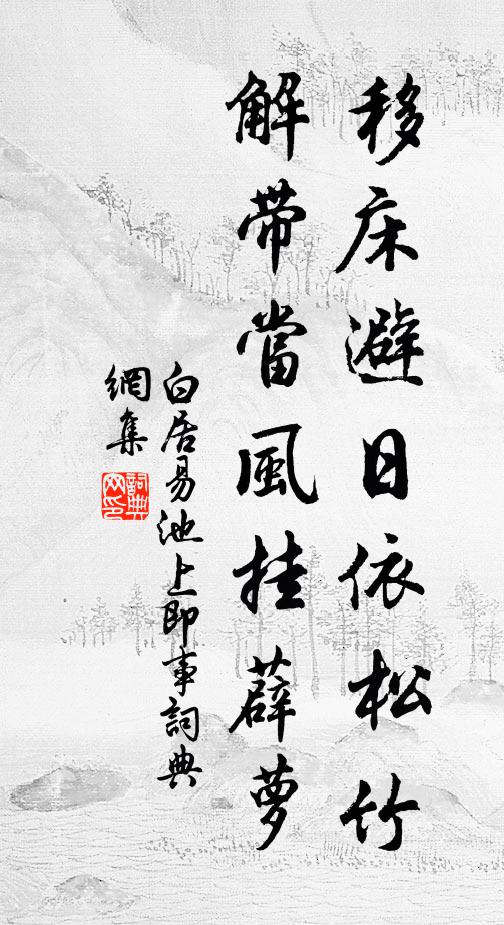 移床避日依松竹
解带當風挂薜萝
白居易池上即事詞典
網集
詞典
网印